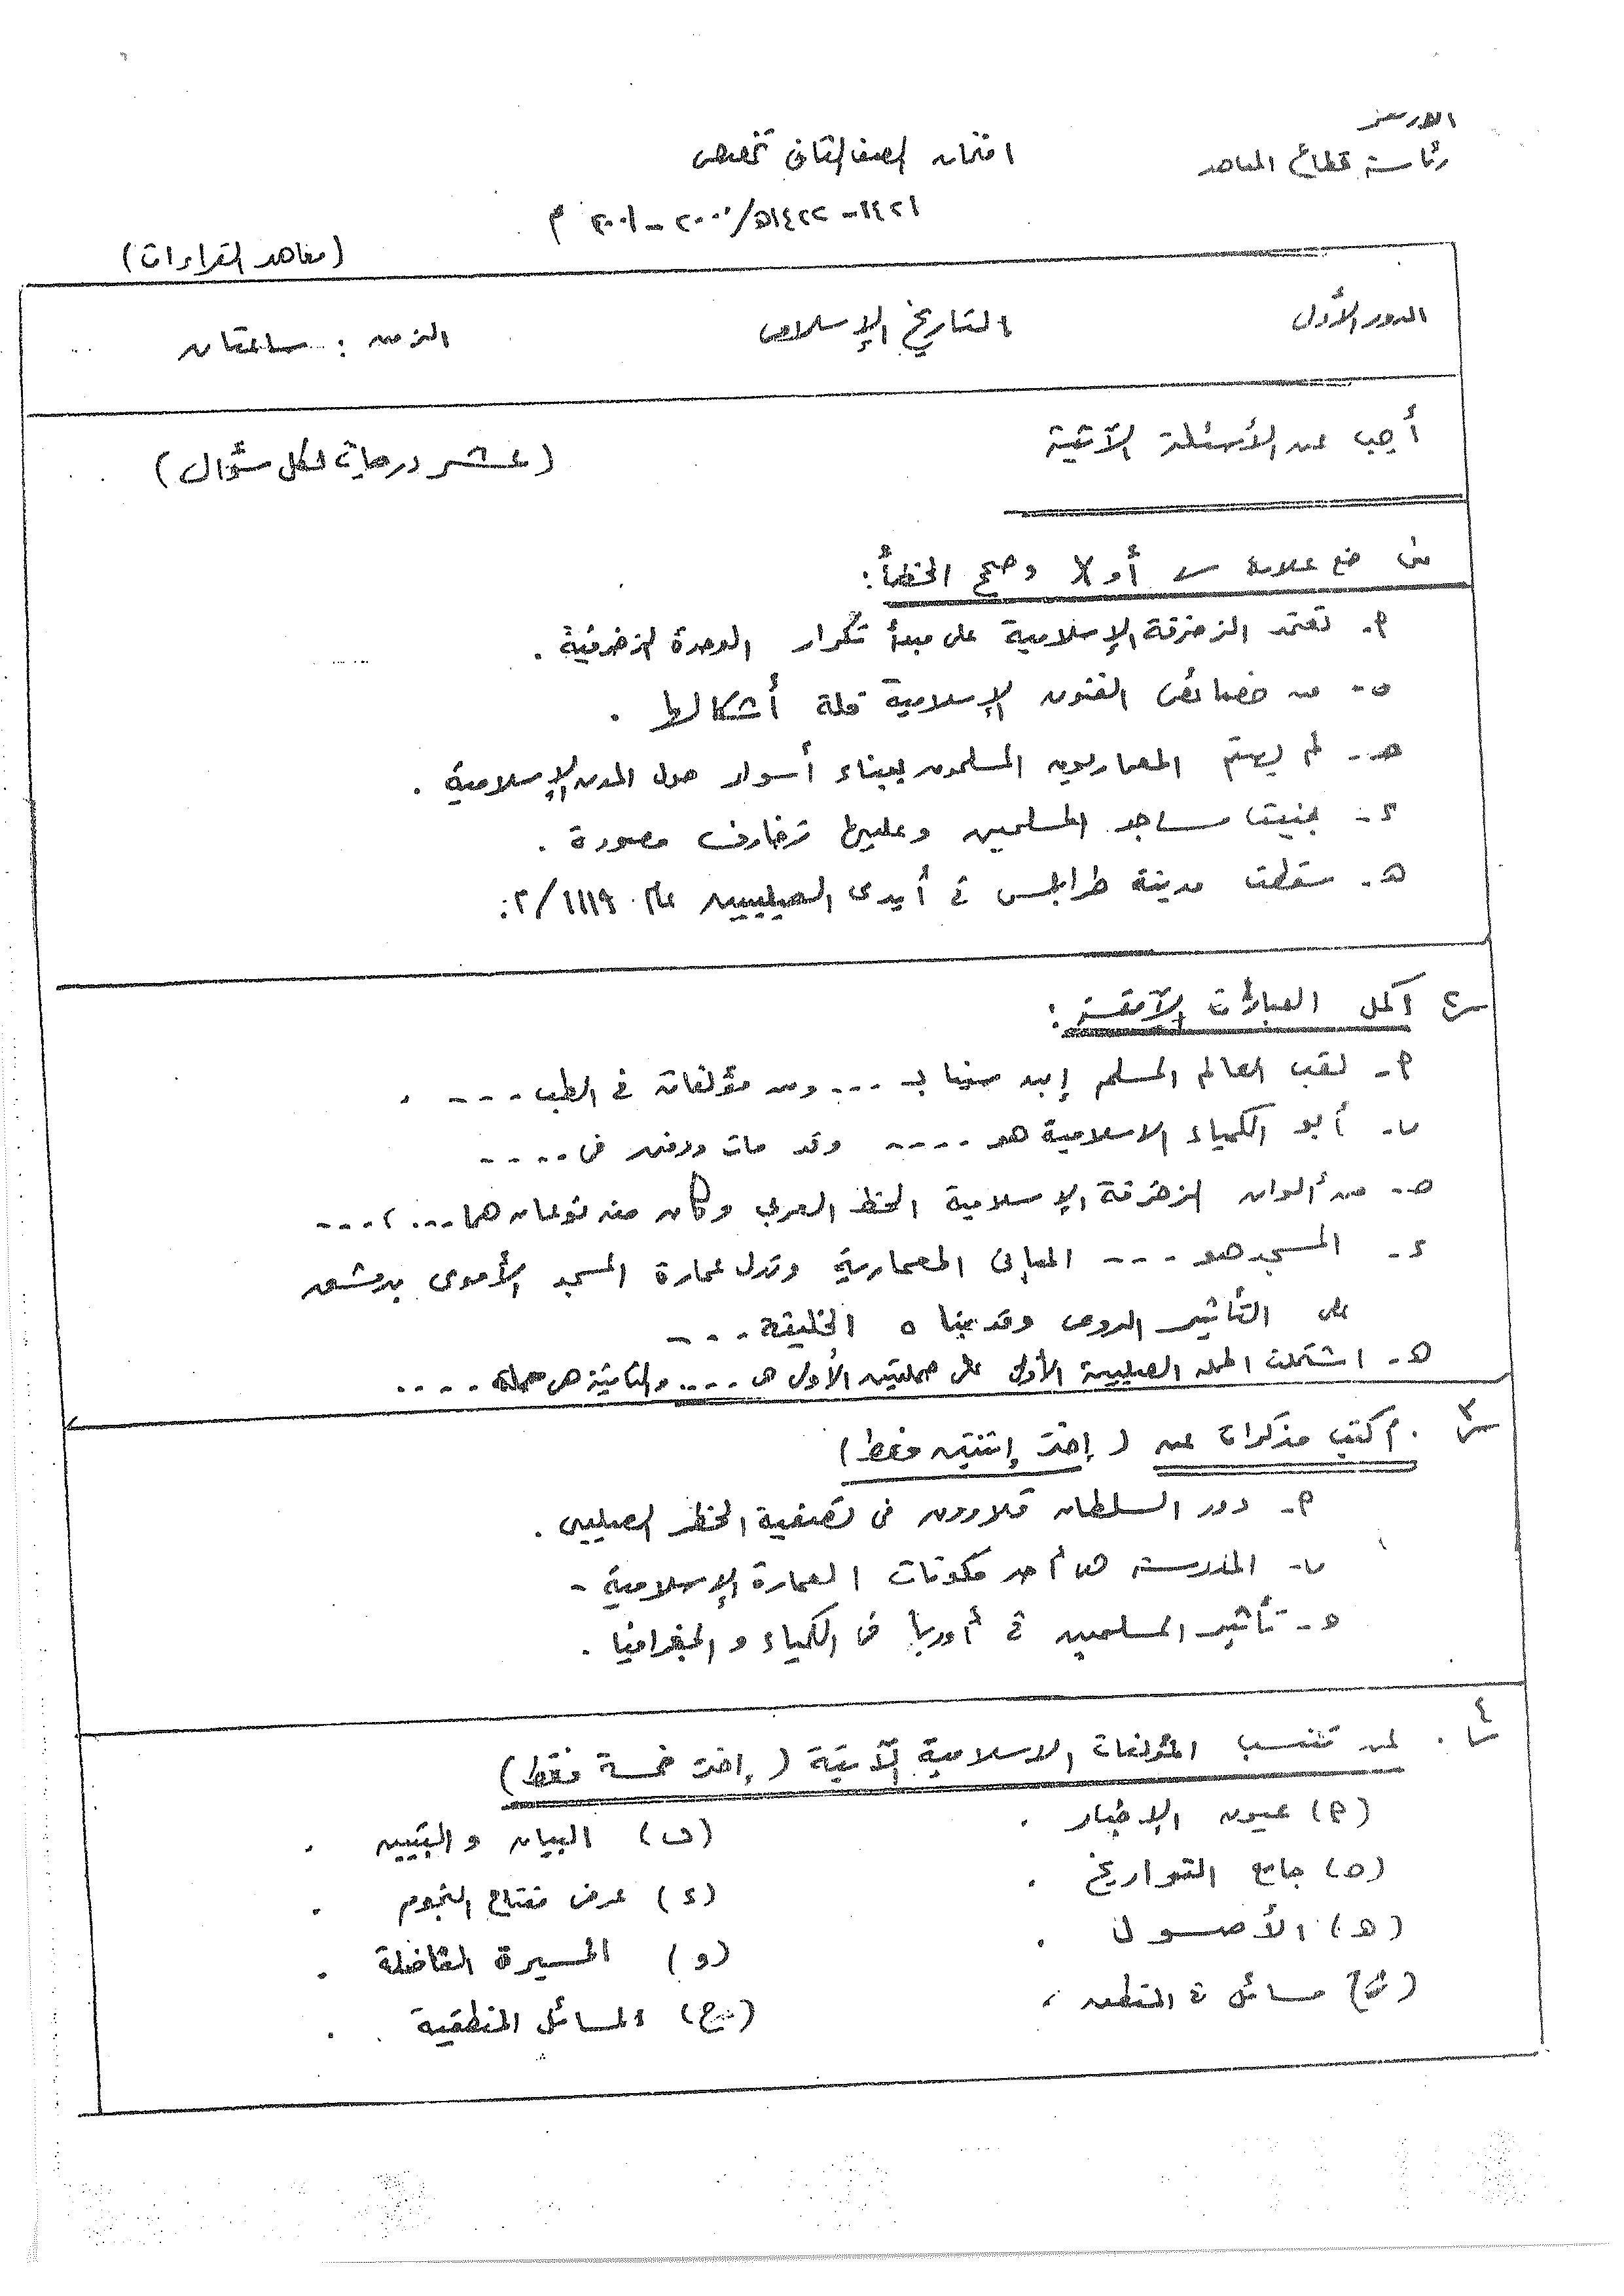 الازهر
رئاسة قطاع المعاهد
امتحان الصف الثانى تخصص
١٤٢١-١٤٢٢ھ/٢٠٠٠-٢٠٠١ م
(معاهد القراءات)
الدور الأول
التاريخ الإسلامى
الزمن : ساعتان
أجب عن الأسئلة الآتية
(عشر درجات لكل سؤال)
س١ ضع علامة ✓ أو X وصحح الخطأ:
م- تعتمد الزخرفة الإسلامية على مبدأ تكرار الوحدة الزخرفية .
ب- من خصائص الفنون الإسلامية قلة أشكالها .
حـ- لم يهتم المعماريون المسلمون ببناء أسوار حول المدن الإسلامية .
ء- بنيت مساجد المسلمين وعليها زخارف مصورة .
هـ- سقطت مدينة طرابلس فى أيدى الصليبيين عام ١١١٩/م:
س٢ اكمل العبارات الآتية :
م- لقب العالم المسلم إبن سينا بـ --- ومن مؤلفاته فى الطب ---- .
ب- أبو الكيمياء الاسلامية هو ---- وقد مات ودفن فى ----
حـ- من ألوان الزخرفة الإسلامية الخط العربى وكان منه نوعان هما ---، ----
ء- المسجد هو --- المبانى المعمارية وتدل عمارة المسجد الأموى بدمشق
على التأثير الرومى وقد بناه الخليفة ----
هـ- اشتملت الحملة الصليبية الأولى على حملتين الأولى هى ---- والثانية هى حملة ----
س٣ . اكتب مذكرات عن ( إختر إثنتين فقط )
م- دور السلطان قلاوون فى تصفية الخطر الصليبى .
ب- المدرسة هى أحد مكونات العمارة الإسلامية -
حـ- تأثير المسلمين فى أوربا فى الكيمياء و الجغرافيا .
س٤ . لمن تنسب المؤلفات الاسلامية الآتية ( إختر خمسة فقط )
(م) عيون الإخبار .
(ب) البيان والتبيين .
(حـ) جامع التواريخ .
(ء) عرض مفتاح النجوم .
(هـ) الأصول .
(و) السيرة الفاضلة .
مسائل فى المنطق .
(ح) المسائل المنطقية .